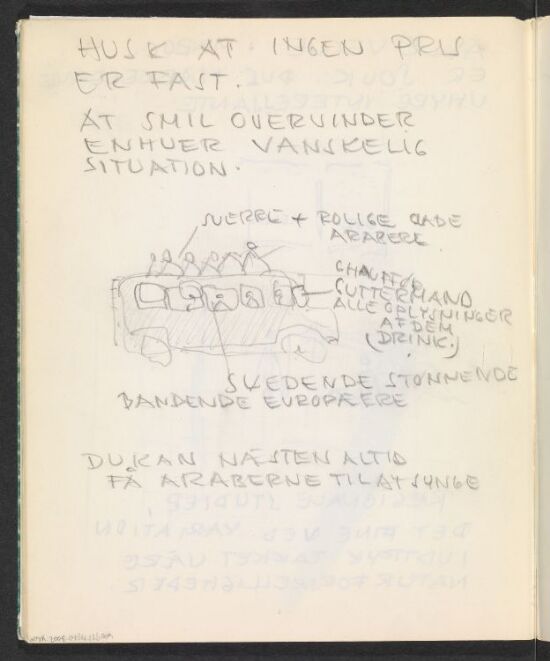 HUSK AT INGEN PRIS
ER FAST.
AT SMIL OVERVINDER
ENHVER VANSKELIG
SITUATION.
+ ROLIGE GLADE
ARABERE
CHAUFFØR
GUTTERMAND
ALLE OPLYSNINGER
AF DEM
(DRINK.)
SVEDENDE STØNNENDE
BANDENDE EUROPÆERE
DU KAN NÆSTEN ALTID
FÅ ARABERNE TIL AT SYNGE